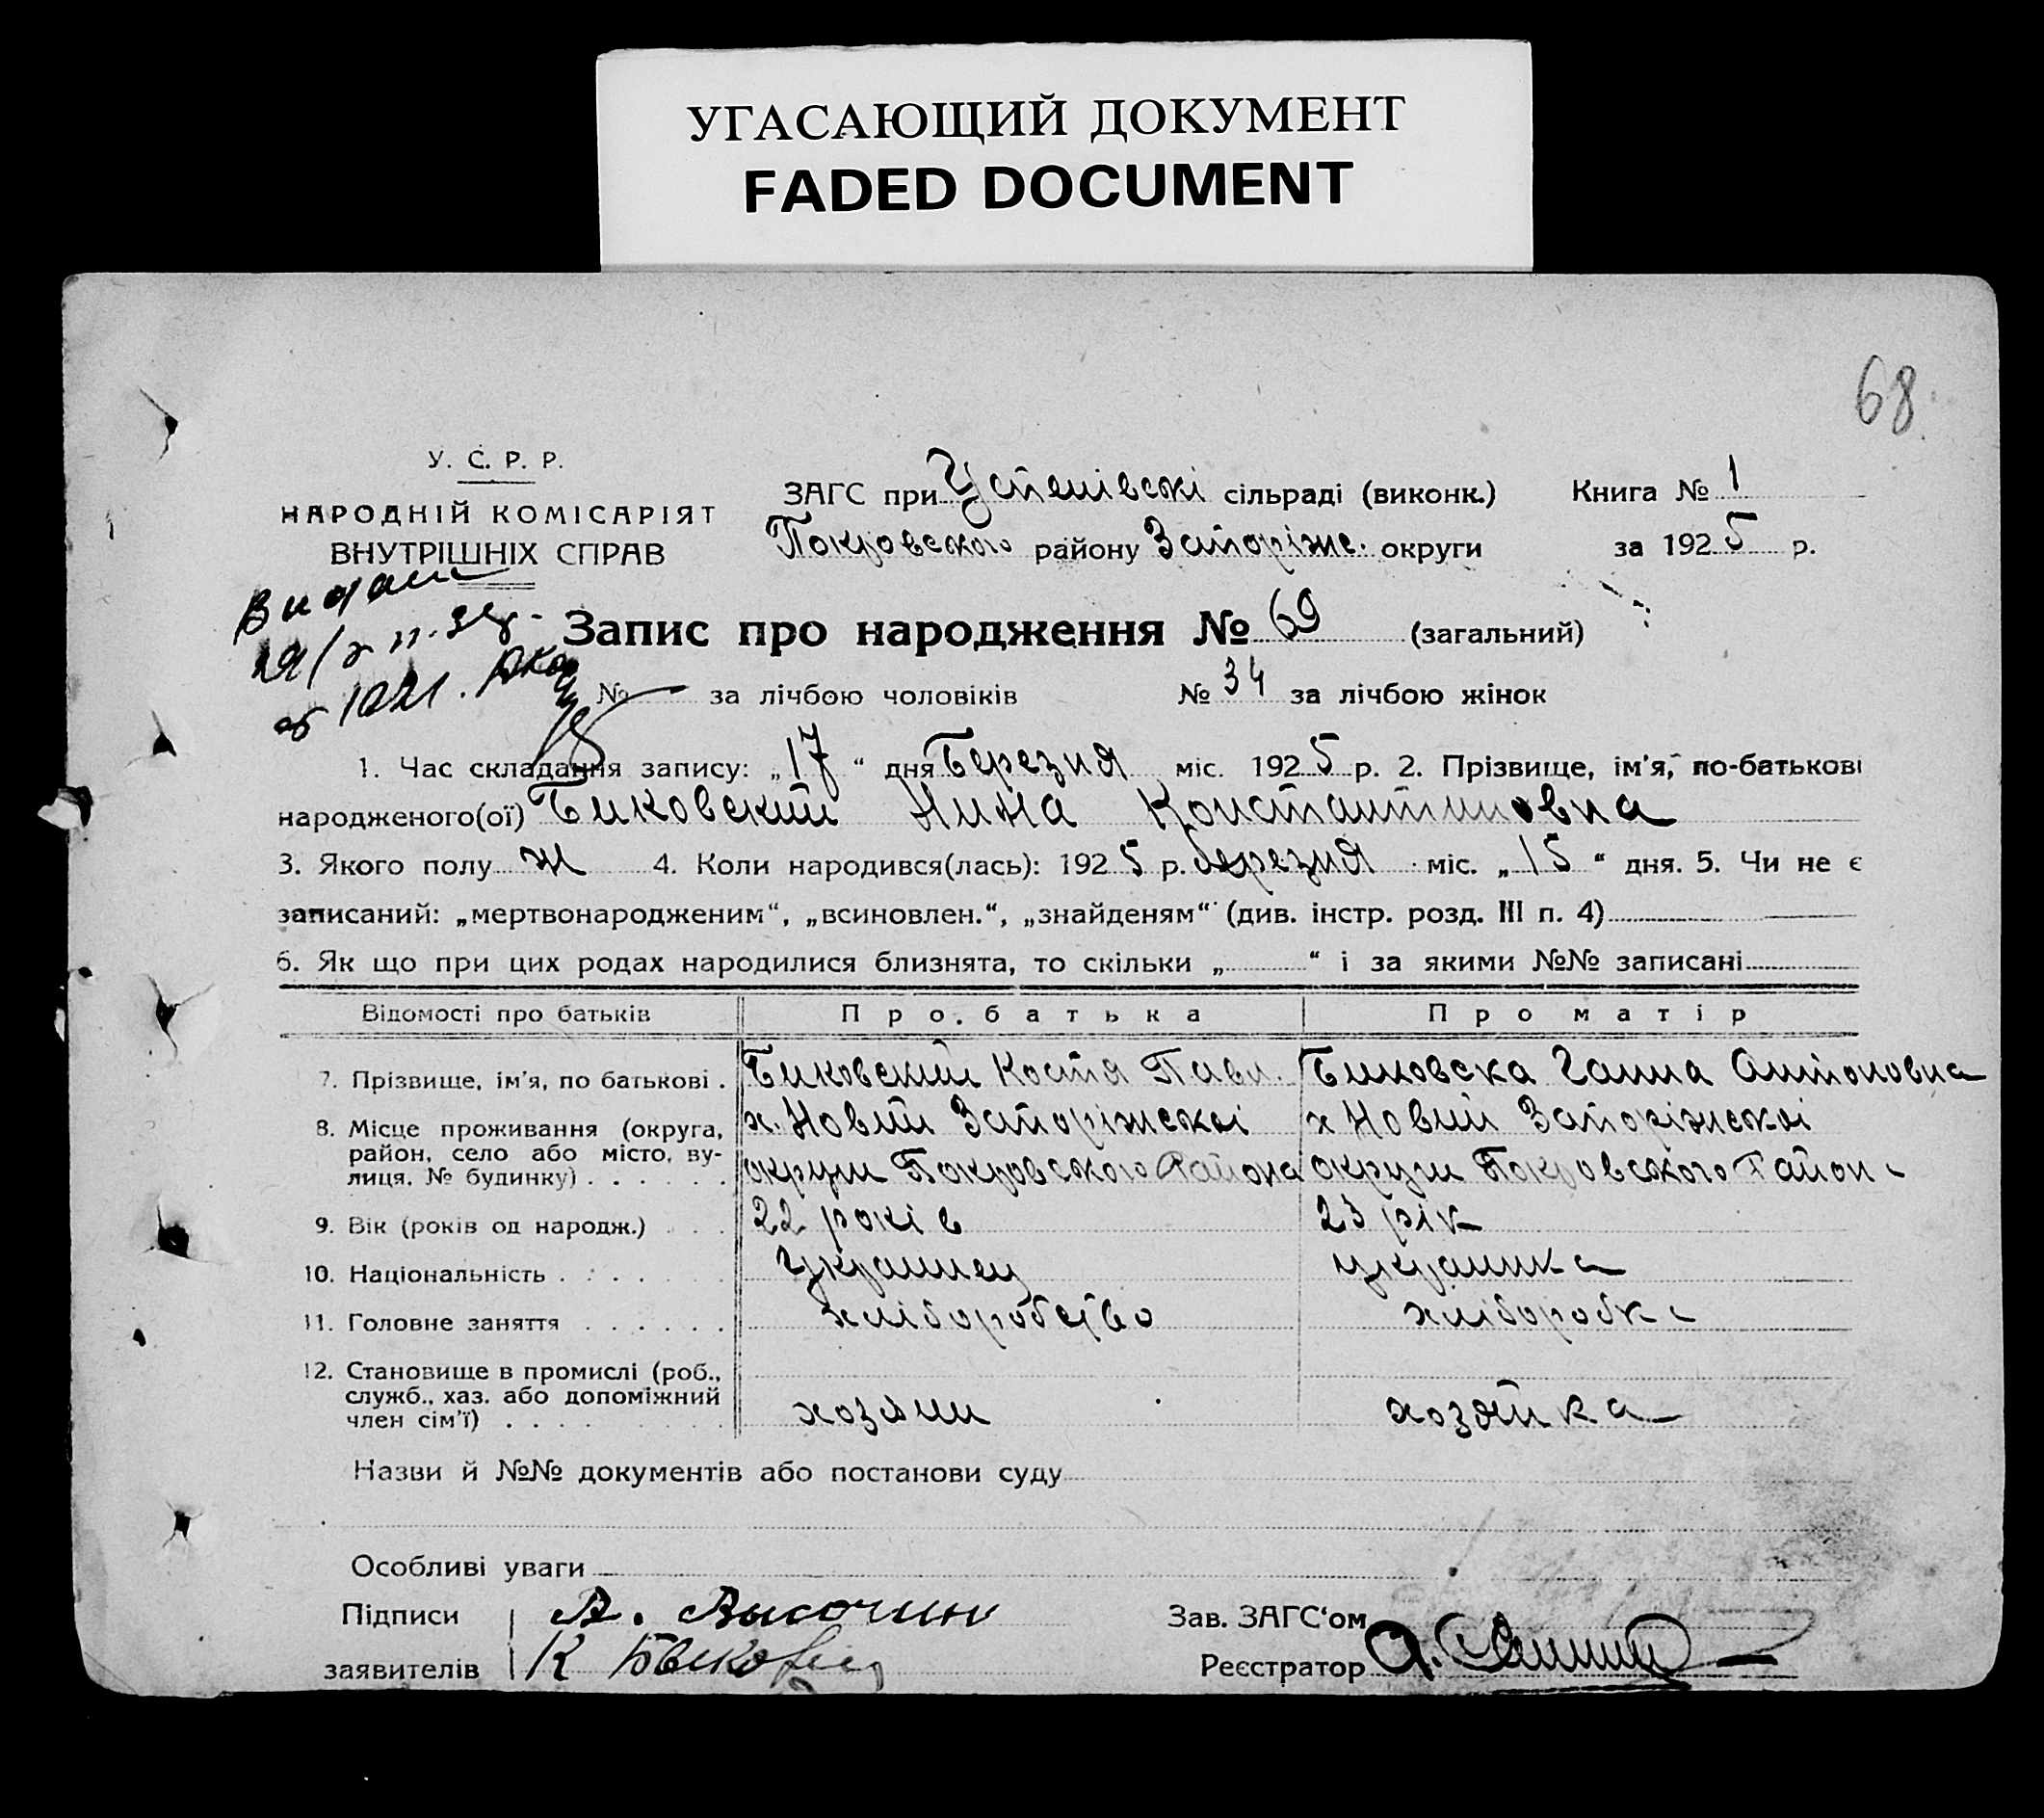 УГАСАЮЩИЙ ДОКУМЕНТ
FADED DOCUMENT
68
У. С. Р. Р.
НАРОДНІЙ КОМІСАРІЯТ
ВНУТРІШНІХ СПРАВ
ЗАГС при Успенівські сільраді (виконк.) Книга № 1
Покровського району Запоріжс. округи за 1925 р.
Запис про народження № 69 (загальний)
№ — за лічбою чоловіків № 34 за лічбою жінок
1. Час складання запису: „17“ дня Березня міс. 1925 р. 2. Прізвище, ім'я, по-батькові
народженого(ої) Биковский Нина Константиновна
3. Якого полу ж 4. Коли народився(лась): 1925 р. березня міс. „15“ дня. 5. Чи не є
записаний: „мертвонародженим“, „всиновлен.“, „знайденям“ (див. інстр. розд. III п. 4)
6. Як що при цих родах народилися близнята, то скільки „ “ і за якими №№ записані
Відомості про батьків Про батька Про матір
7. Прізвище, ім'я, по батькові . Биковский Костя Павл. Биковска Ганна Антоновна
8. Місце проживання (округа, район, село або місто, вулиця, № будинку) . . . . . . х. Новий Запоріжскоі округи Покровського Района х Новий Запоріжскоі округи Покровського Район
9. Вік (років од народж.) . . . 22 років 23 рік
10. Національність . . . . . . . Украинец украинка
11. Головне заняття . . . . . . хліборобство хліборобка
12. Становище в промислі (роб., служб., хаз. або допоміжний член сім'ї) . . . . . . . хозяин хозяйка
Назви й №№ документів або постанови суду
Особливі уваги
Підписи А. Зав. ЗАГС'ом
заявителів К Биковский Реєстратор